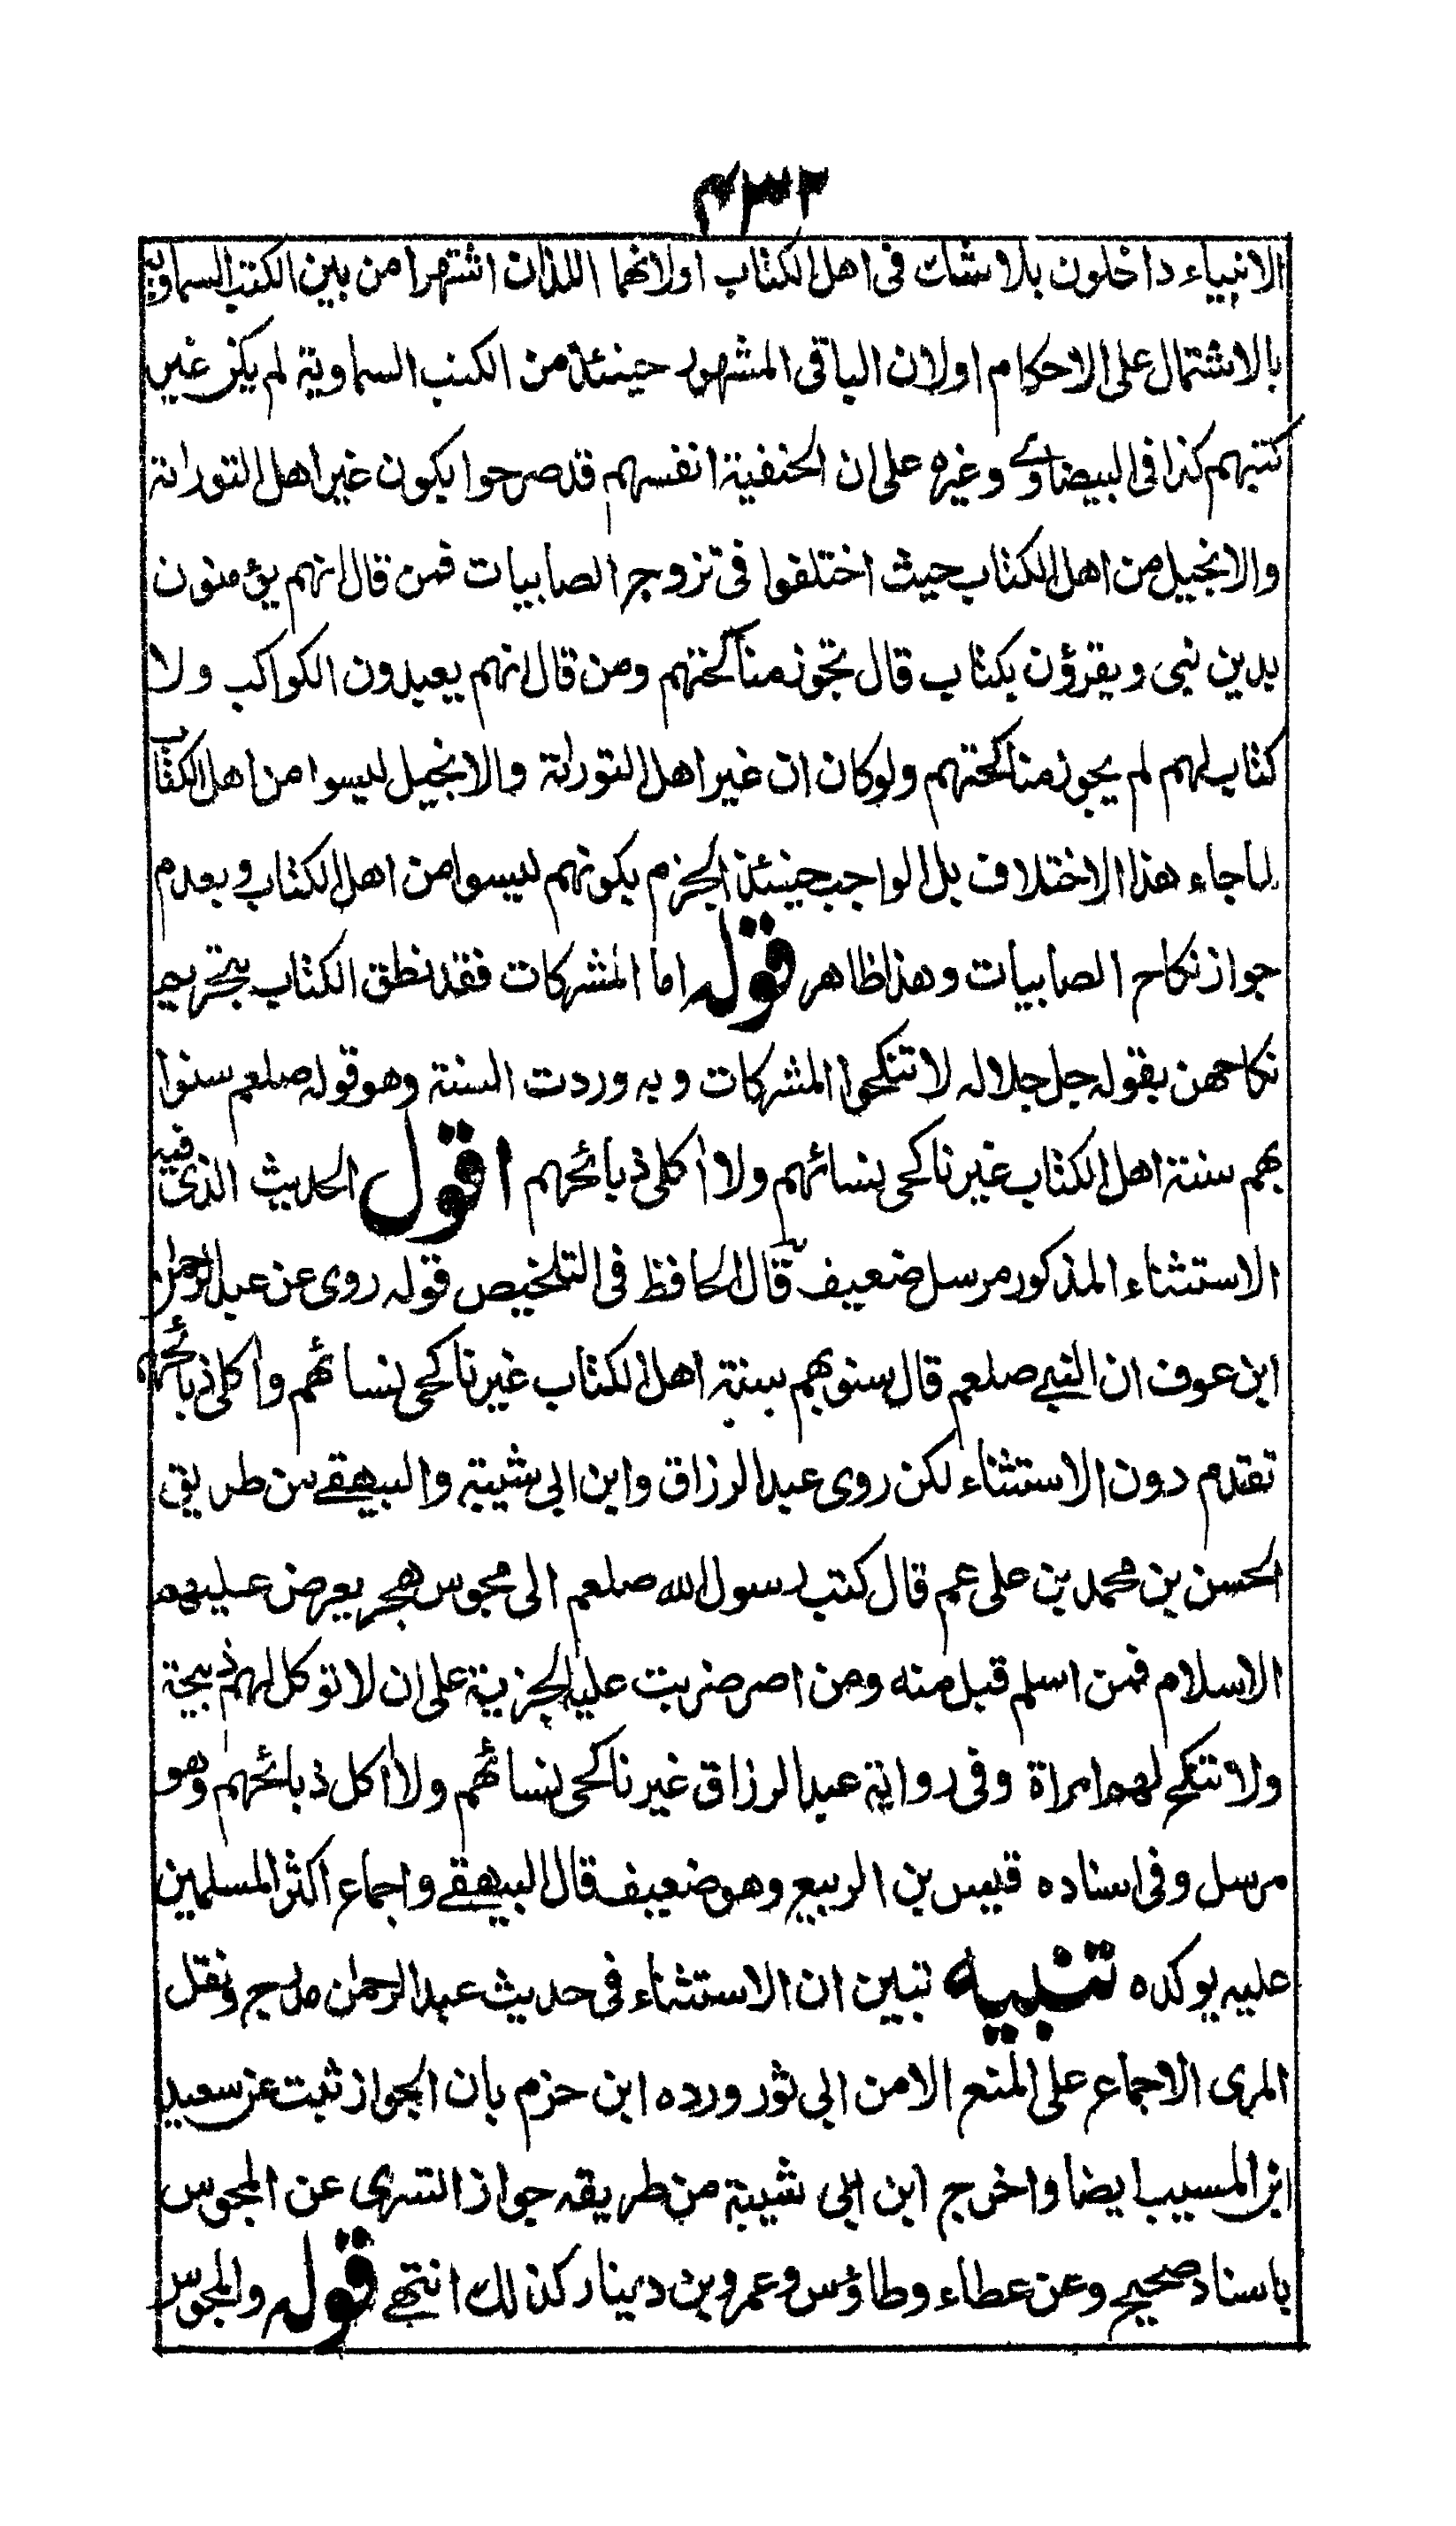 ٤٣٢
الانبياء داخلون بلا شك فى اهل الكتاب او لانهما اللذان اشتهرا من بين الكتب السماويه
بالاشتمال على الاحكام او لان الباقى المشهور حينئذ من الكتب السماوية لم يكن غير
كتبهم كذا فى البيضاوي وغيره على ان الحنفية انفسهم قد صرحوا بكون غير اهل التوراتة
والانجيل من اهل الكتاب حيث اختلفوا فى تزوج الصابيات فمن قال انهم يؤمنون
بدين نبى ويقرؤن بكتاب قال تجوز مناكحتهم ومن قال انهم يعبدون الكواكب ولا
كتاب لهم لم يجوز مناكحتهم ولو كان ان غير اهل التوراتة والانجيل ليسوا من اهل الكتاب
لما جاء هذا الاختلاف بل الواجب حينئذ الجزم بكونهم ليسوا من اهل الكتاب وبعدم
جواز نكاح الصابيات وهذا ظاهر قوله اما المشركات فقد نطق الكتاب بتحريم
نكاحهن بقوله جل جلاله لا تنكحوا المشركات وبه وردت السنة وهو قوله صلعم سنوا
بهم سنة اهل الكتاب غير ناكحى نسائهم ولا اكلى ذبائحهم اقول الحديث الذى فيه
الاستثناء المذكور مرسل ضعيف قال الحافظ فى التلخيص قوله روى عن عبد الرحمن
ابن عوف ان النبي صلعم قال سنو بهم سنة اهل الكتاب غير ناكحى نسائهم واكلى ذبائحهم
تقدم دون الاستثناء لكن روى عبد الرزاق وابن ابى شيبة والبيهقي من طريق
الحسن بن محمد بن على عم قال كتب رسول الله صلعم الى مجوس هجر يعرض عليهم
الاسلام فمن اسلم قبل منه ومن اصر ضربت عليه الجزية على ان لا توكل لهم ذبيحة
ولا تنكح لهم امراة وفى رواية عبد الرزاق غير ناكحى نسائهم ولا اكل ذبائحهم وهو
مرسل وفى اسناده قيس بن الربيع وهو ضعيف قال البيهقي واجماع اكثر المسلمين
عليه يوكده تنبيه تبين ان الاستثناء فى حديث عبد الرحمن مدرج ونقل
المرى الاجماع على المنع الا من ابى ثور ورده ابن حزم بان الجواز ثبت عن سعيد
ابن المسيب ايضا واخرج ابن ابى شيبة من طريقه جواز التسرى عن المجوس
باسناد صحيح وعن عطاء وطاؤس وعمرو بن دينار كذلك انتهى قوله والمجوس